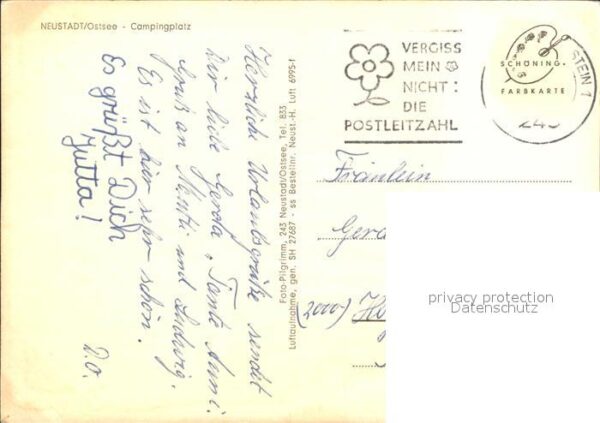 NEUSTADT/Ostsee - Campingplatz
Herzliche Urlaubsgrüße sendet
Dir liebe Gerda, Tante Anni.
Gruß an Mutti und Ludwig.
Es ist hier sehr schön.
Es grüßt Dich
Jutta!
D.O.
Foto-Pilgrimm, 243 Neustadt/Ostsee, Tel. 833
Luftaufnahme, gen. SH 27687 - ss Bestellnr. Neust.-H. Luft 6995-f
VERGISS
MEIN
NICHT:
DIE
POSTLEITZAHL
STEIN 1
243
SCHÖNING
FARBKARTE
Fräulein
Gerd
(2000)
privacy protection
Datenschutz